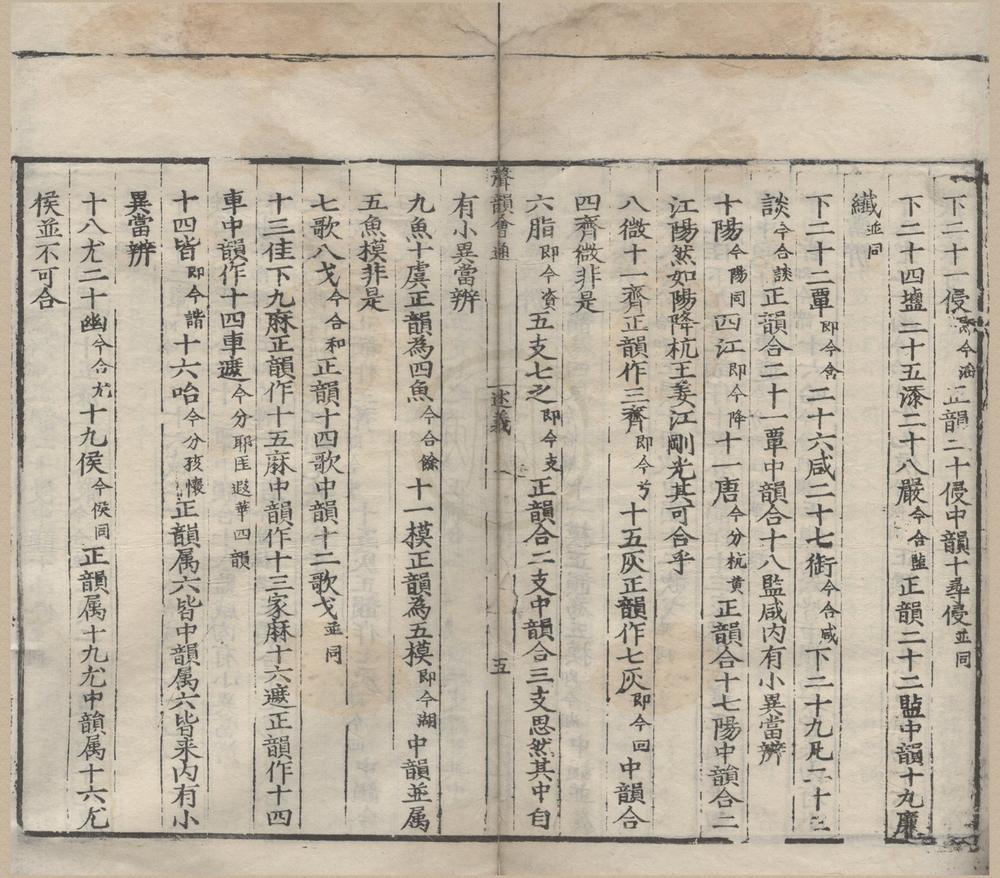 下二十一侵即今涵正韻二十侵中韻十尋侵並同
下二十四鹽二十五添二十八嚴今合鹽正韻二十二鹽中韻十九廉
纖並同
下二十二覃即今含二十六咸二十七銜今合咸下二十九凡二十三
談今合談正韻合二十一覃中韻合十八監咸内有小異當辨
十陽今陽同四江即今降十一唐今分杭黄正韻合十七陽中韻合二
江陽然如陽降杭王姜江剛光其可合乎
八微十一齊正韻作三齊即今兮十五灰正韻作七灰即今回中韻合
四齊微非是
六脂即今資五支七之即今支正韻合二支中韻合三支思然其中自
聲韻會通
述義
五
有小異當辨
九魚十虞正韻為四魚今合餘十一摸正韻為五摸即今湖中韻並属
五魚摸非是
七歌八戈今合和正韻十四歌中韻十二歌戈並同
十三佳下九麻正韻作十五麻中韻作十三家麻十六遮正韻作十四
車中韻作十四車遮今分耶匡遐華四韻
十四皆即今諧十六咍今分孩懷正韻属六皆中韻属六皆来内有小
異當辨
十八尤二十幽今合尤十九侯今侯同正韻属十九尤中韻属十六尤
侯並不可合